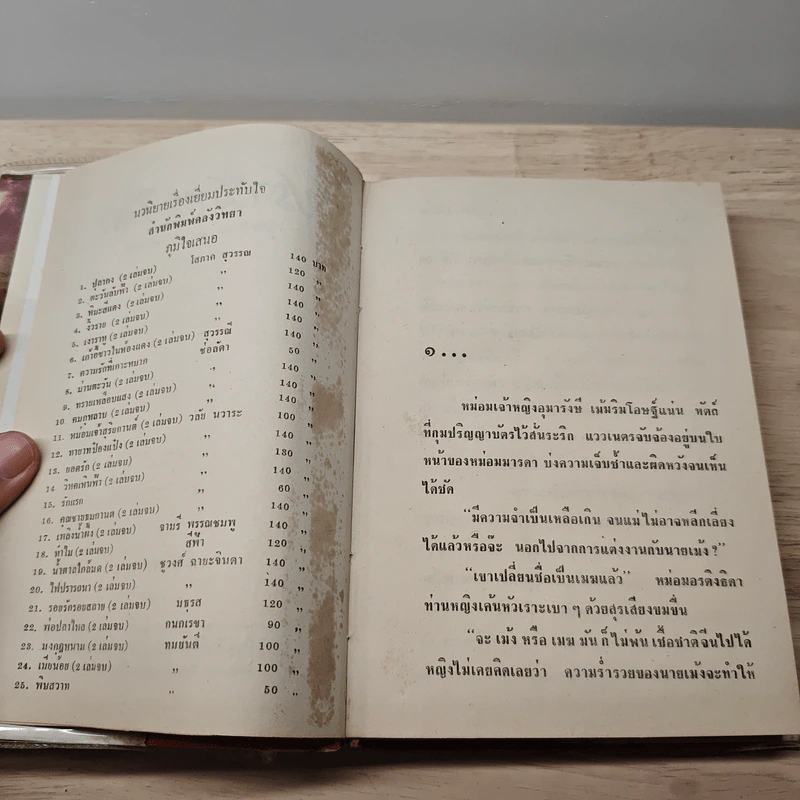 นวนิยายเรื่องเยี่ยมประทับใจ
สำนักพิมพ์คลังวิทยา
ภูมิใจเสนอ
1. ปุลากง (2 เล่มจบ) โสภาค สุวรรณ 140 บาท
2. ตะวันลับฟ้า (2 เล่มจบ) ,, 120 ,,
3. (2 เล่มจบ) ,, 140 ,,
4. งิ้วราย (2 เล่มจบ) ,, 140 ,,
5. เงาราหู (2 เล่มจบ) ,, 140 ,,
6. เก้าอี้ขาวในห้องแดง (2 เล่มจบ) สุวรรณี 140 ,,
7. ความรักที่เกาะหมาก ช่อลัดา 50 ,,
8. ม่านตะวัน (2 เล่มจบ) ,, 140 ,,
9. ทรายเหลือบแสง (2 เล่มจบ) ,, 140 ,,
10. คมกุหลาบ (2 เล่มจบ) ,, 140 ,,
11. หม่อมเจ้าสุริยกานต์ (2 เล่มจบ) วลัย นวาระ 100 ,,
12. ทายาทป้องแป้ง (2 เล่มจบ) ,, 140 ,,
13. ยอดรัก (2 เล่มจบ) ,, 180 ,,
14. วิหคเหินฟ้า (2 เล่มจบ) ,, 140 ,,
15. รักแรก ,, 60 ,,
16. คุณชายธมกานต์ (2 เล่มจบ) ,, 140 ,,
17. เพลิงน้ำผึ้ง (2 เล่มจบ) จามรี พรรณชมพู 140 ,,
18. ทำไม (2 เล่มจบ) สีฟ้า 120 ,,
19. น้ำตาลใกล้มด (2 เล่มจบ) ชูวงศ์ ฉายะจินดา 140 ,,
20. ไฟปรารถนา (2 เล่มจบ) ,, 140 ,,
21. รอยรักรอยสลาย (2 เล่มจบ) มธุรส 120 ,,
22. พ่อปลาไหล (2 เล่มจบ) กนกเรขา 90 ,,
23. มงกุฎหนาม (2 เล่มจบ) ทมยันตี 100 ,,
24. เมียน้อย (2 เล่มจบ) ,, 100 ,,
25. พิษสวาท ,, 50 ,,
๑...
หม่อมเจ้าหญิงอุมารังษี เม้มริมโอษฐ์แน่น หัตถ์
ที่กุมปริญญาบัตรไว้สั่นระริก แววเนตรจับจ้องอยู่บนใบ
หน้าของหม่อมมารดา บ่งความเจ็บช้ำและผิดหวังจนเห็น
ได้ชัด
“มีความจำเป็นเหลือเกิน จนแม่ไม่อาจหลีกเลี่ยง
ได้แล้วหรือจ๊ะ นอกไปจากการแต่งงานกับนายเม้ง?”
“เขาเปลี่ยนชื่อเป็นเมฆแล้ว” หม่อมอรดิงธิดา
ท่านหญิงเค้นหัวเราะเบา ๆ ด้วยสุรเสียงขมขื่น
“จะ เม้ง หรือ เมฆ มัน ก็ ไม่พ้น เชื้อชาติจีนไปได้
หญิงไม่เคยคิดเลยว่า ความร่ำรวยของนายเม้งจะทำให้